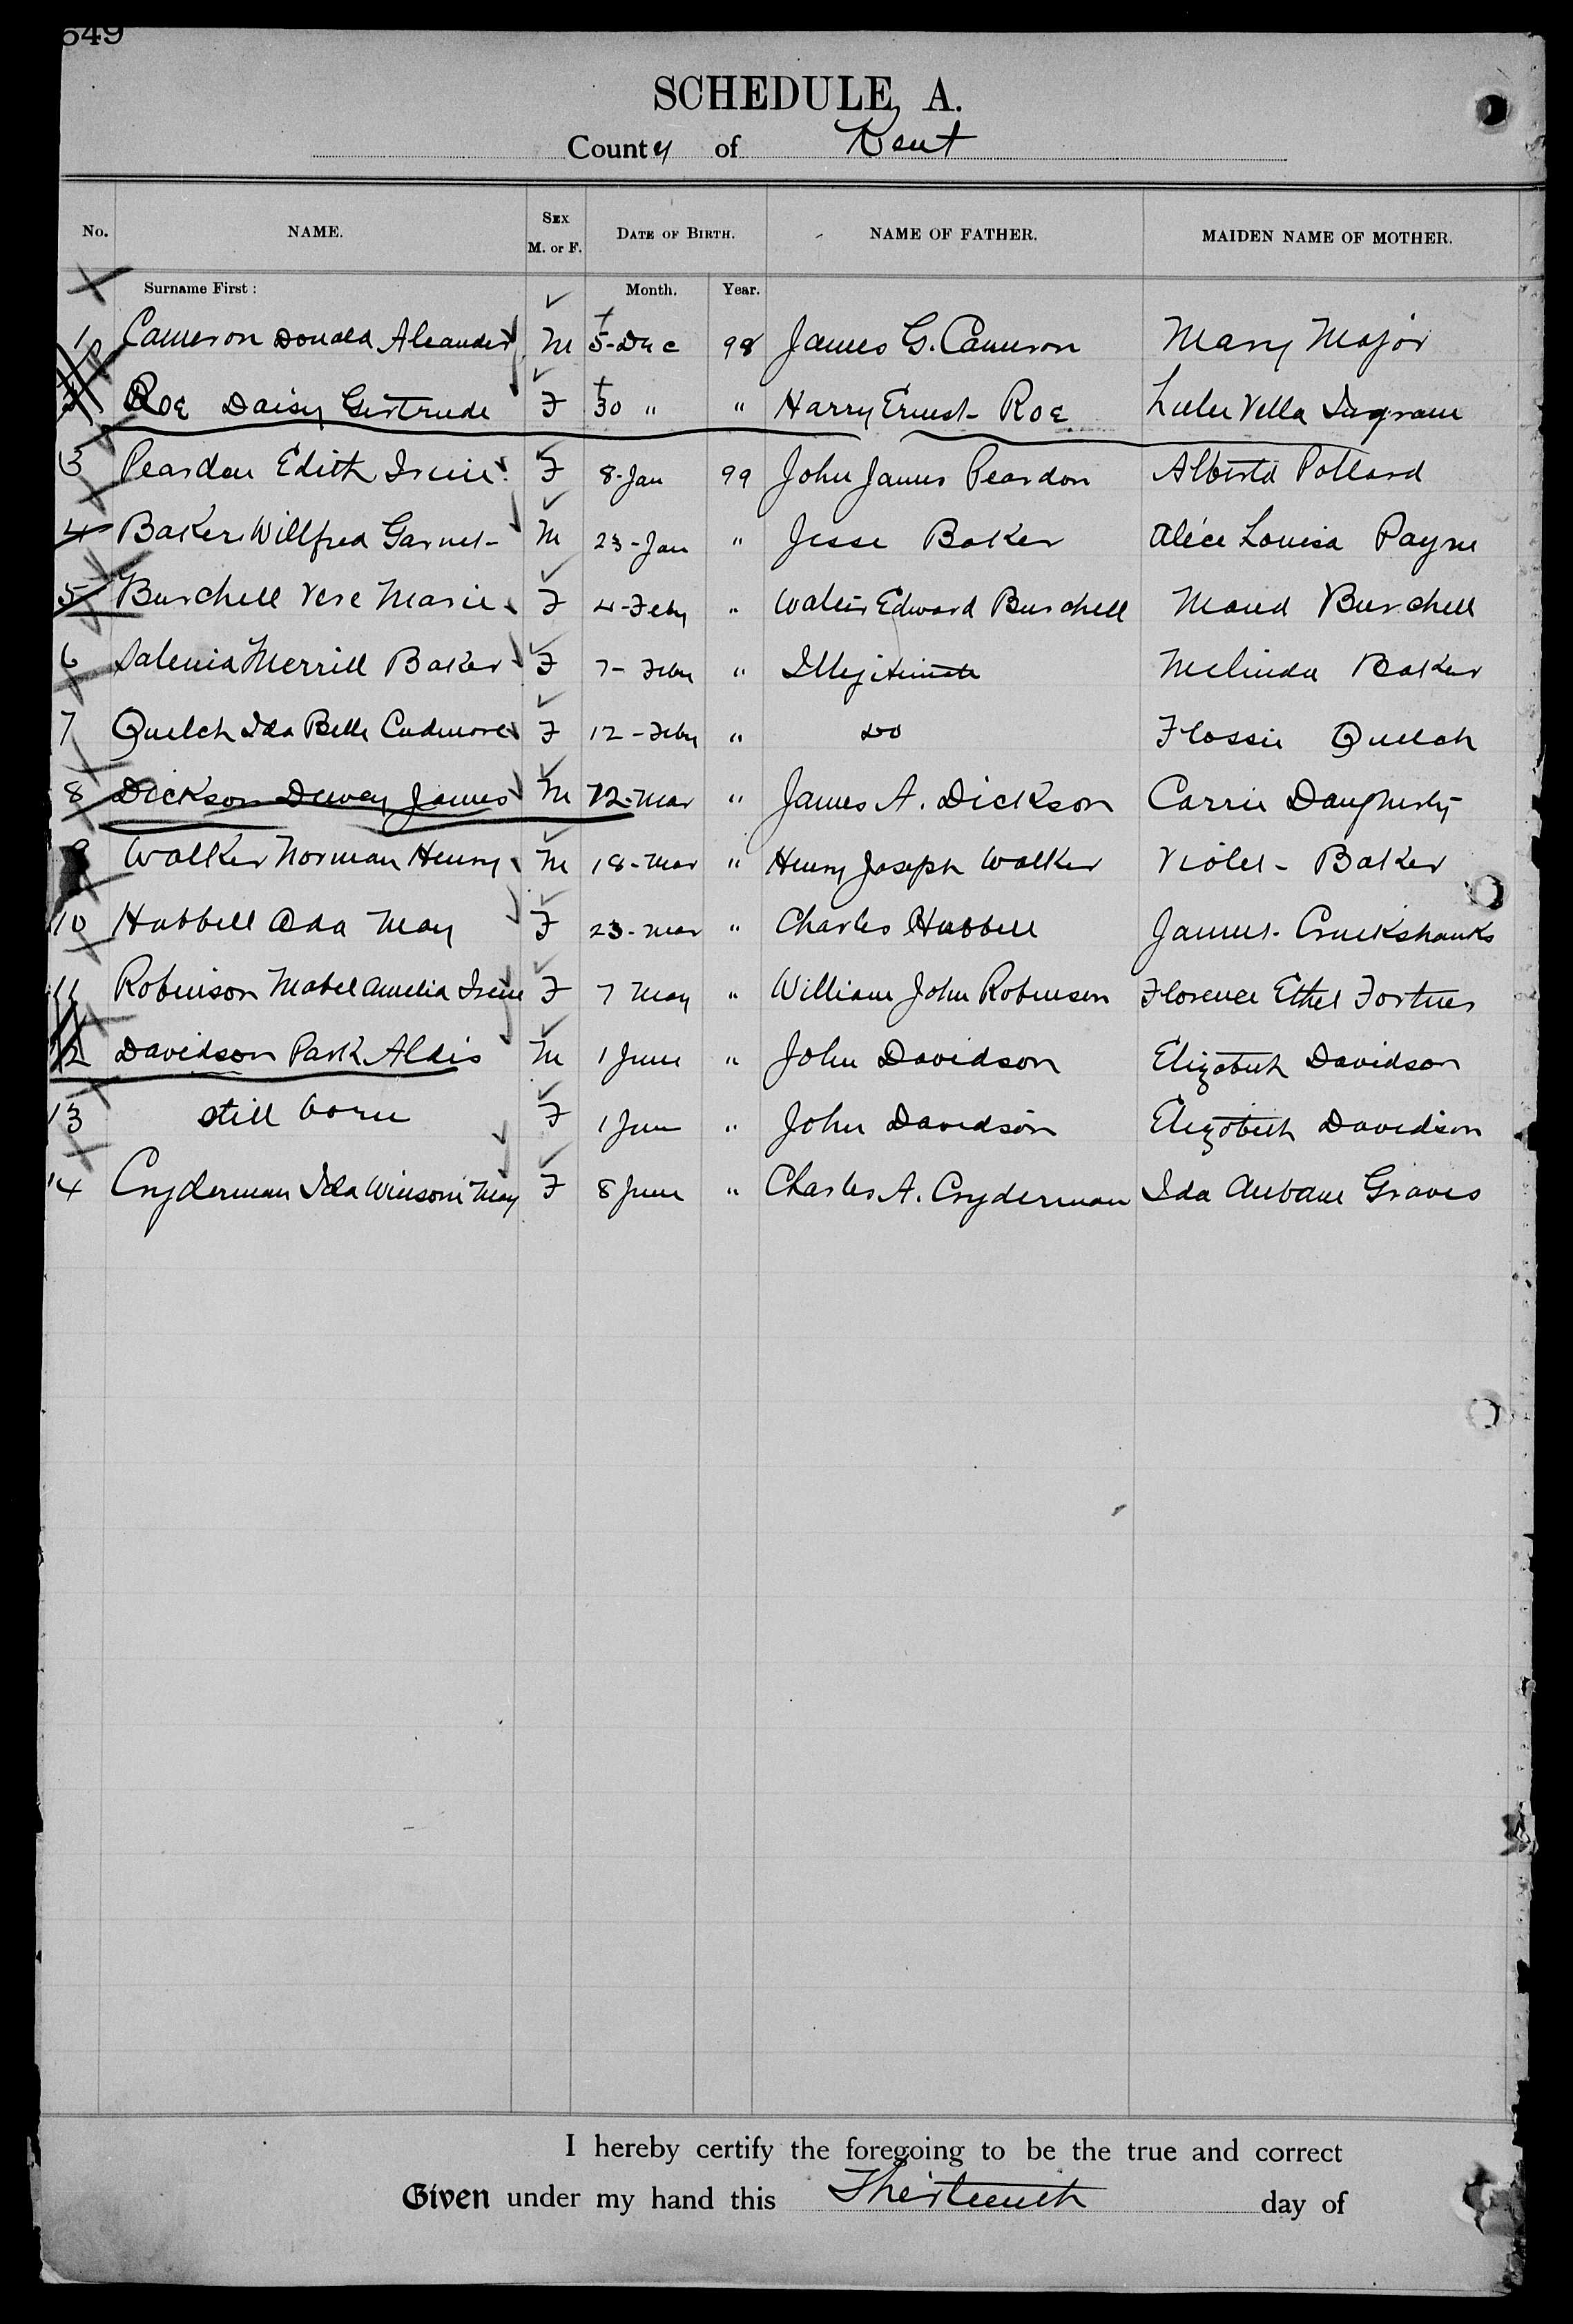 649
SCHEDULE A.
County of Kent
No. NAME. SEX M. or F. DATE OF BIRTH. NAME OF FATHER. MAIDEN NAME OF MOTHER.
Surname First: Month. Year.
1 Cameron Donald Aleander M 5-Dec 98 James G. Cameron Mary Major
2 Roe Daisy Gertrude F 30 " " Harry Ernest Roe Lulu Vella Ingram
3 Peardon Edith Irene F 8-Jan 99 John James Peardon Alberta Pollard
4 Baker Willfred Garnet M 23-Jan " Jesse Baker Alice Louisa Payne
5 Burchell Vere Marie F 4-Feby " Walter Edward Burchell Maud Burchell
6 Merrill Baker F 7-Feby " Illegitimate Melinda Baker
7 Quelch Ida Belle Cudmore F 12-Feby " do Flossie Quelch
8 Dickson Dewey James M 12-Mar " James A. Dickson Carrie Daugherty
9 Walker Norman Henry M 18-Mar " Henry Joseph Walker Violet Baker
10 Hubbell Ada May F 23-Mar " Charles Hubbell Cruikshanks
11 Robinson Mabel Amelia Irene F 7 May " William John Robinson Florence Ethel Fortner
12 Davidson Park Aldis M 1 June " John Davidson Elizabeth Davidson
13 still born F 1 June " John Davidson Elizabeth Davidson
14 Cryderman Ida Winsome May F 8 June " Charles A. Cryderman Ida Graves
I hereby certify the foregoing to be the true and correct
Given under my hand this Thirteenth day of